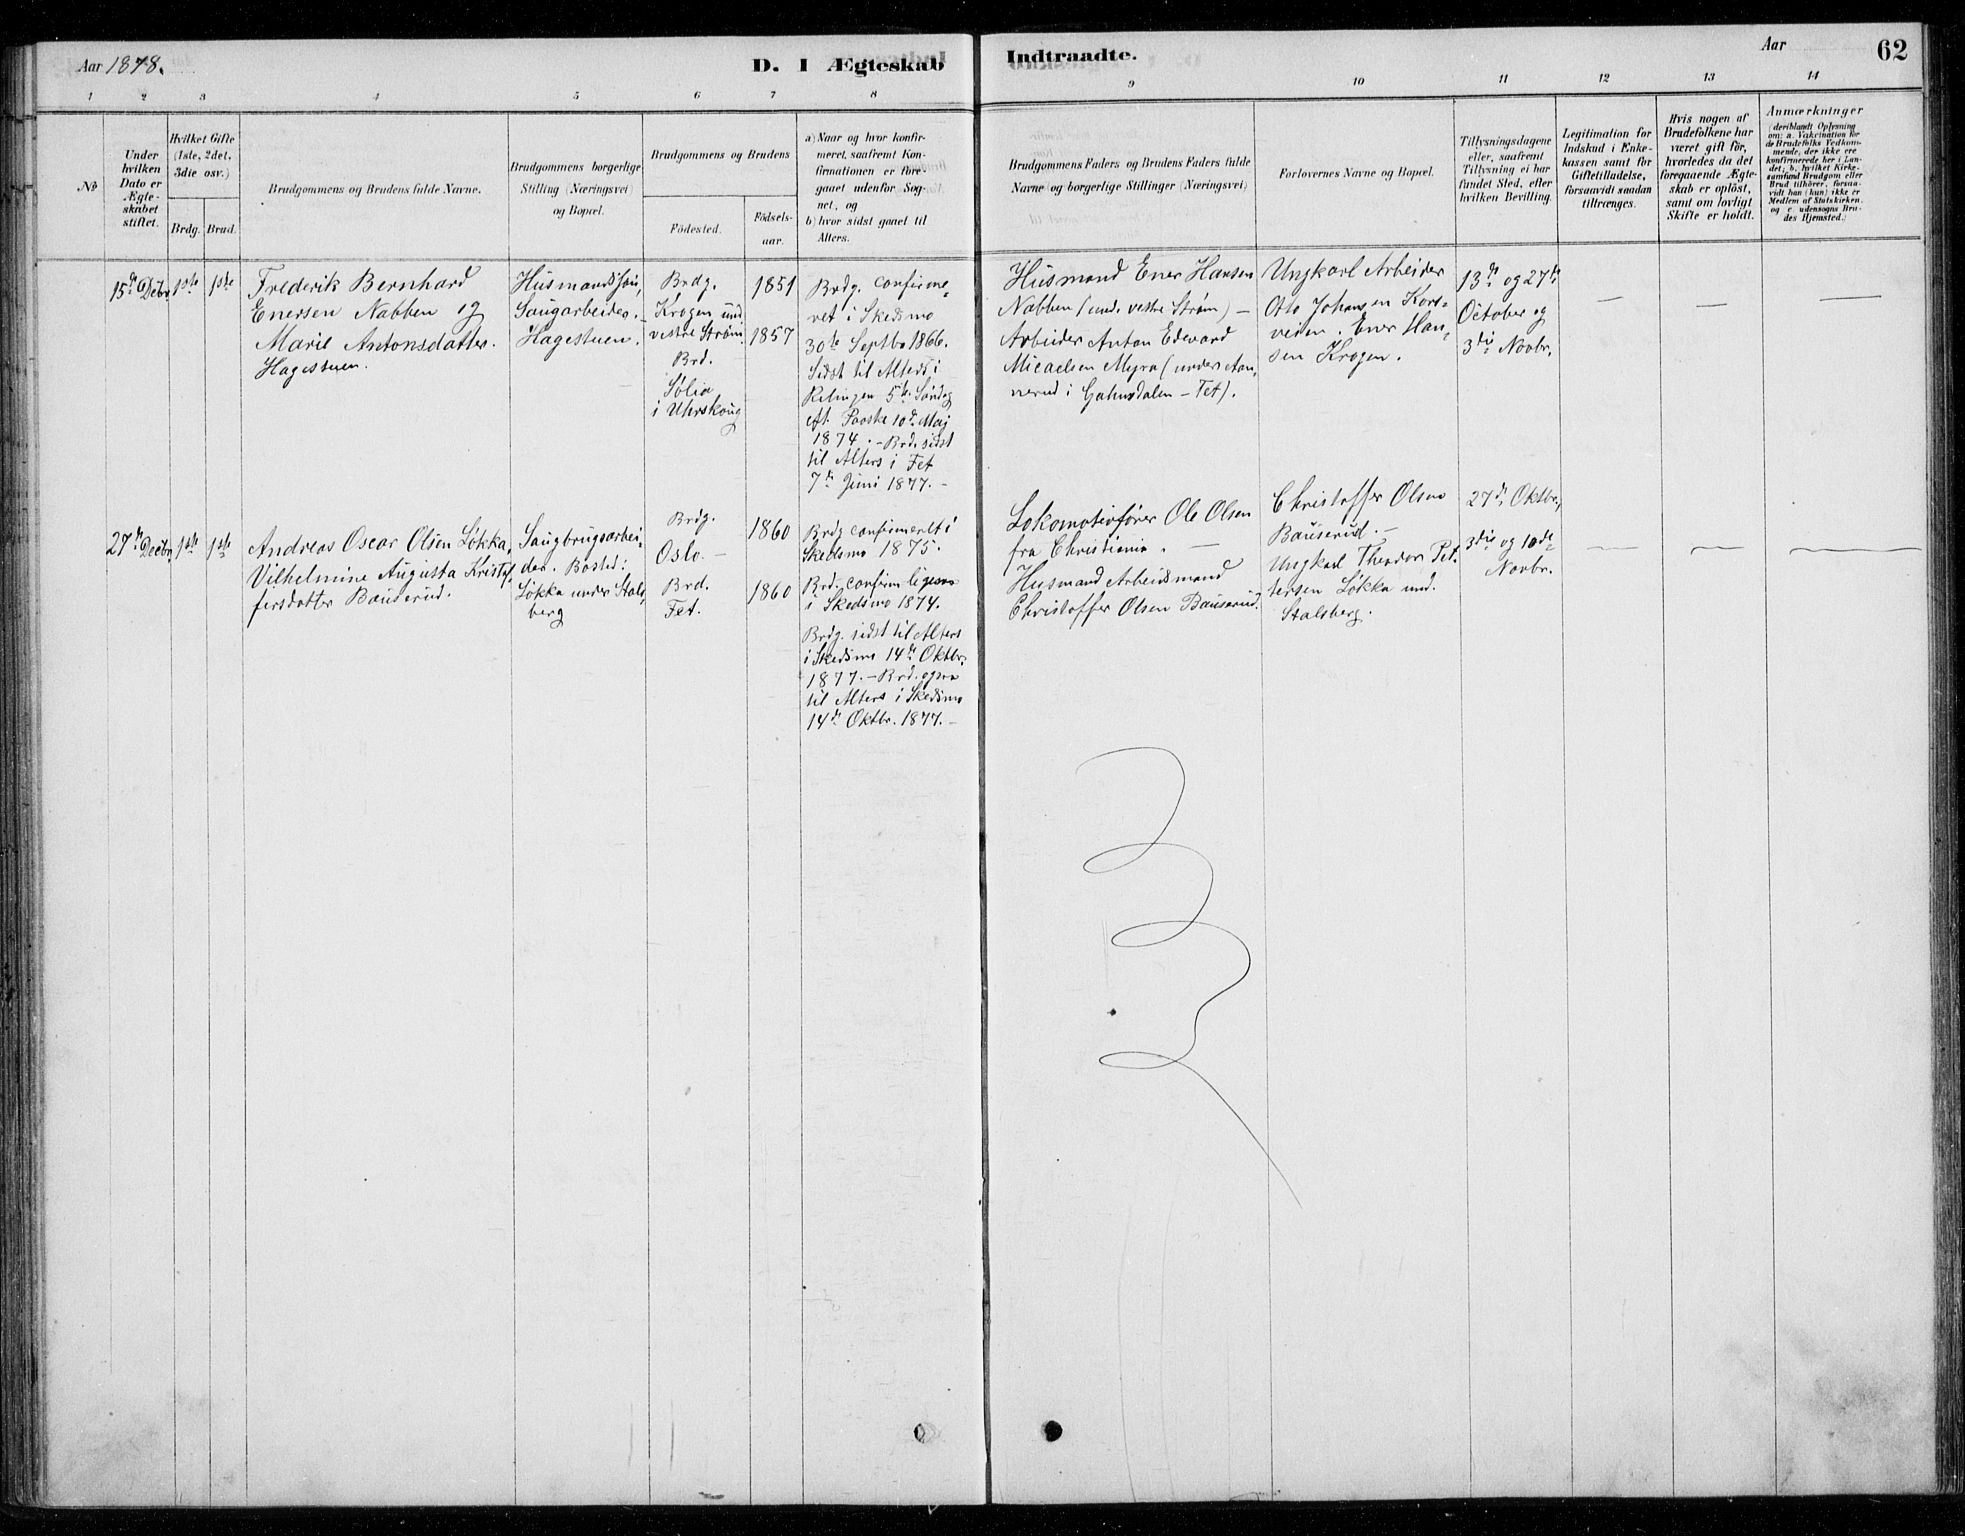 Aar 1878.
D. I Ægteskab
Indtraadte.
Aar
62
1 2 3 4 5 6 7 8
9 10 11 12 13 14
No
Under
hvilken
Dato er
Ægte-
skabet
stiftet.
Hvilket Gifte
(1ste, 2det,
3die osv.)
Brdg. Brud.
Brudgommens og Brudens fulde Navne.
Brudgommens borgerlige
Stilling (Næringsvei)
og Bopæl.
Brudgommens og Brudens
Födested.
Födsels-
aar.
a) Naar og hvor konfir-
meret, saafremt Kon-
firmationen er fore-
gaaet udenfor Sog-
net, og
b) hvor sidst gaaet til
Alters.
Brudgommens Faders og Brudens Faders fulde
Navne og borgerlige Stillinger (Næringsvei)
Forlovernes Navne og Bopæl.
Tillysningsdagene
eller, saafremt
Tillysning ei har
fundet Sted, efter
hvilken Bevilling.
Legitimation for
Indskud i Enke-
kassen samt for
Giftetilladelse,
forsaavidt saadan
tiltrænges.
Hvis nogen af
Brudefolkene har
været gift før,
hvorledes da det
foregaaende Ægte-
skab er opløst,
samt om lovligt
Skifte er holdt.
Anmærkninger
(deriblandt Oplysning
om: a. Vakcination for
de Brudefolks Vedkom-
mende, der ikke ere
konfirmerede her i Lan-
det; b. hvilket Kirke-
samfund Brudgom eller
Brud tilhører, forsaa-
vidt han (hun) ikke er
Medlem af Statskirken,
og c. udensogns Bru-
des Hjemsted.)
15de Decbr 1ste 1ste
Frederik Bernhard
Enersen Nabben og
Marie Antonsdatter
Hagestuen.
Husmandssøn,
Saugarbeider.
Hagestuen.
Brdg.
Krogen und.
vestre Strøm
Brd.
Sølia
i Uhrskoug
1851
1857
Brdg. confirme-
ret i Skedsmo
30te Septbr 1866.
Sidst til Alters i
Relingen 5te Søndag
eft. Paaske 10de Maj
1874. - Brd. sidst
til Alters i Fet
7de Juni 1877. -
Husmand Ener Hansen
Nabben (und. vestre Strøm) -
Arbeider Anton Edevard
Micaelsen Myra (under Aan-
nerud i Gahnsdalen - Fet).
Ungkarl Arbeider
Otto Johansen Kors-
veien. Ener Han-
sen Krogen.
13de og 27de
October og
3die Novbr.
— — —
27de Decbr 1ste 1ste
Andreas Oscar Olsen Løkka,
Vilhelmine Augusta Kristof-
fersdatter Bauserud.
Saugbrugsarbei-
der. Bosted:
Løkka under Stals-
berg
Brdg.
Oslo. -
Brd.
Fet.
1860
1860
Brdg confirmeret i
Skedsmo 1875.
Brd. confirm. ligesaa
i Skedsmo 1874.
Brdg. sidst til Alters
i Skedsmo 14de Oktbr.
1877. - Brd. ogsaa
til Alters i Skedsmo
14de Oktbr. 1877. -
Lokomotivfører Ole Olsen
fra Christiania. —
Husmand Arbeidsmand
Christoffer Olsen Bauserud.
Christoffer Olsen
Bauserud. -
Ungkarl Theodor Pet-
tersen Løkka und.
Stalsberg.
27de Oktbr.,
3die og 10de
Novbr.
— — —